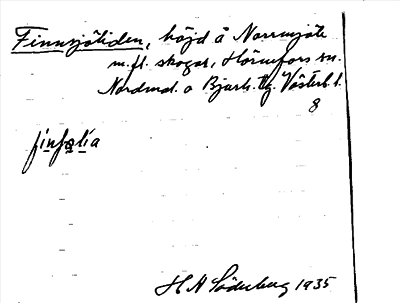 Finnsjöliden, höjd å Norrmjöle
m.fl. skogar, Hörnefors sn.
Nordmal. o Bjurh. tlg. Västerb. l.
8
finfɷlía
H A Söderberg 1935